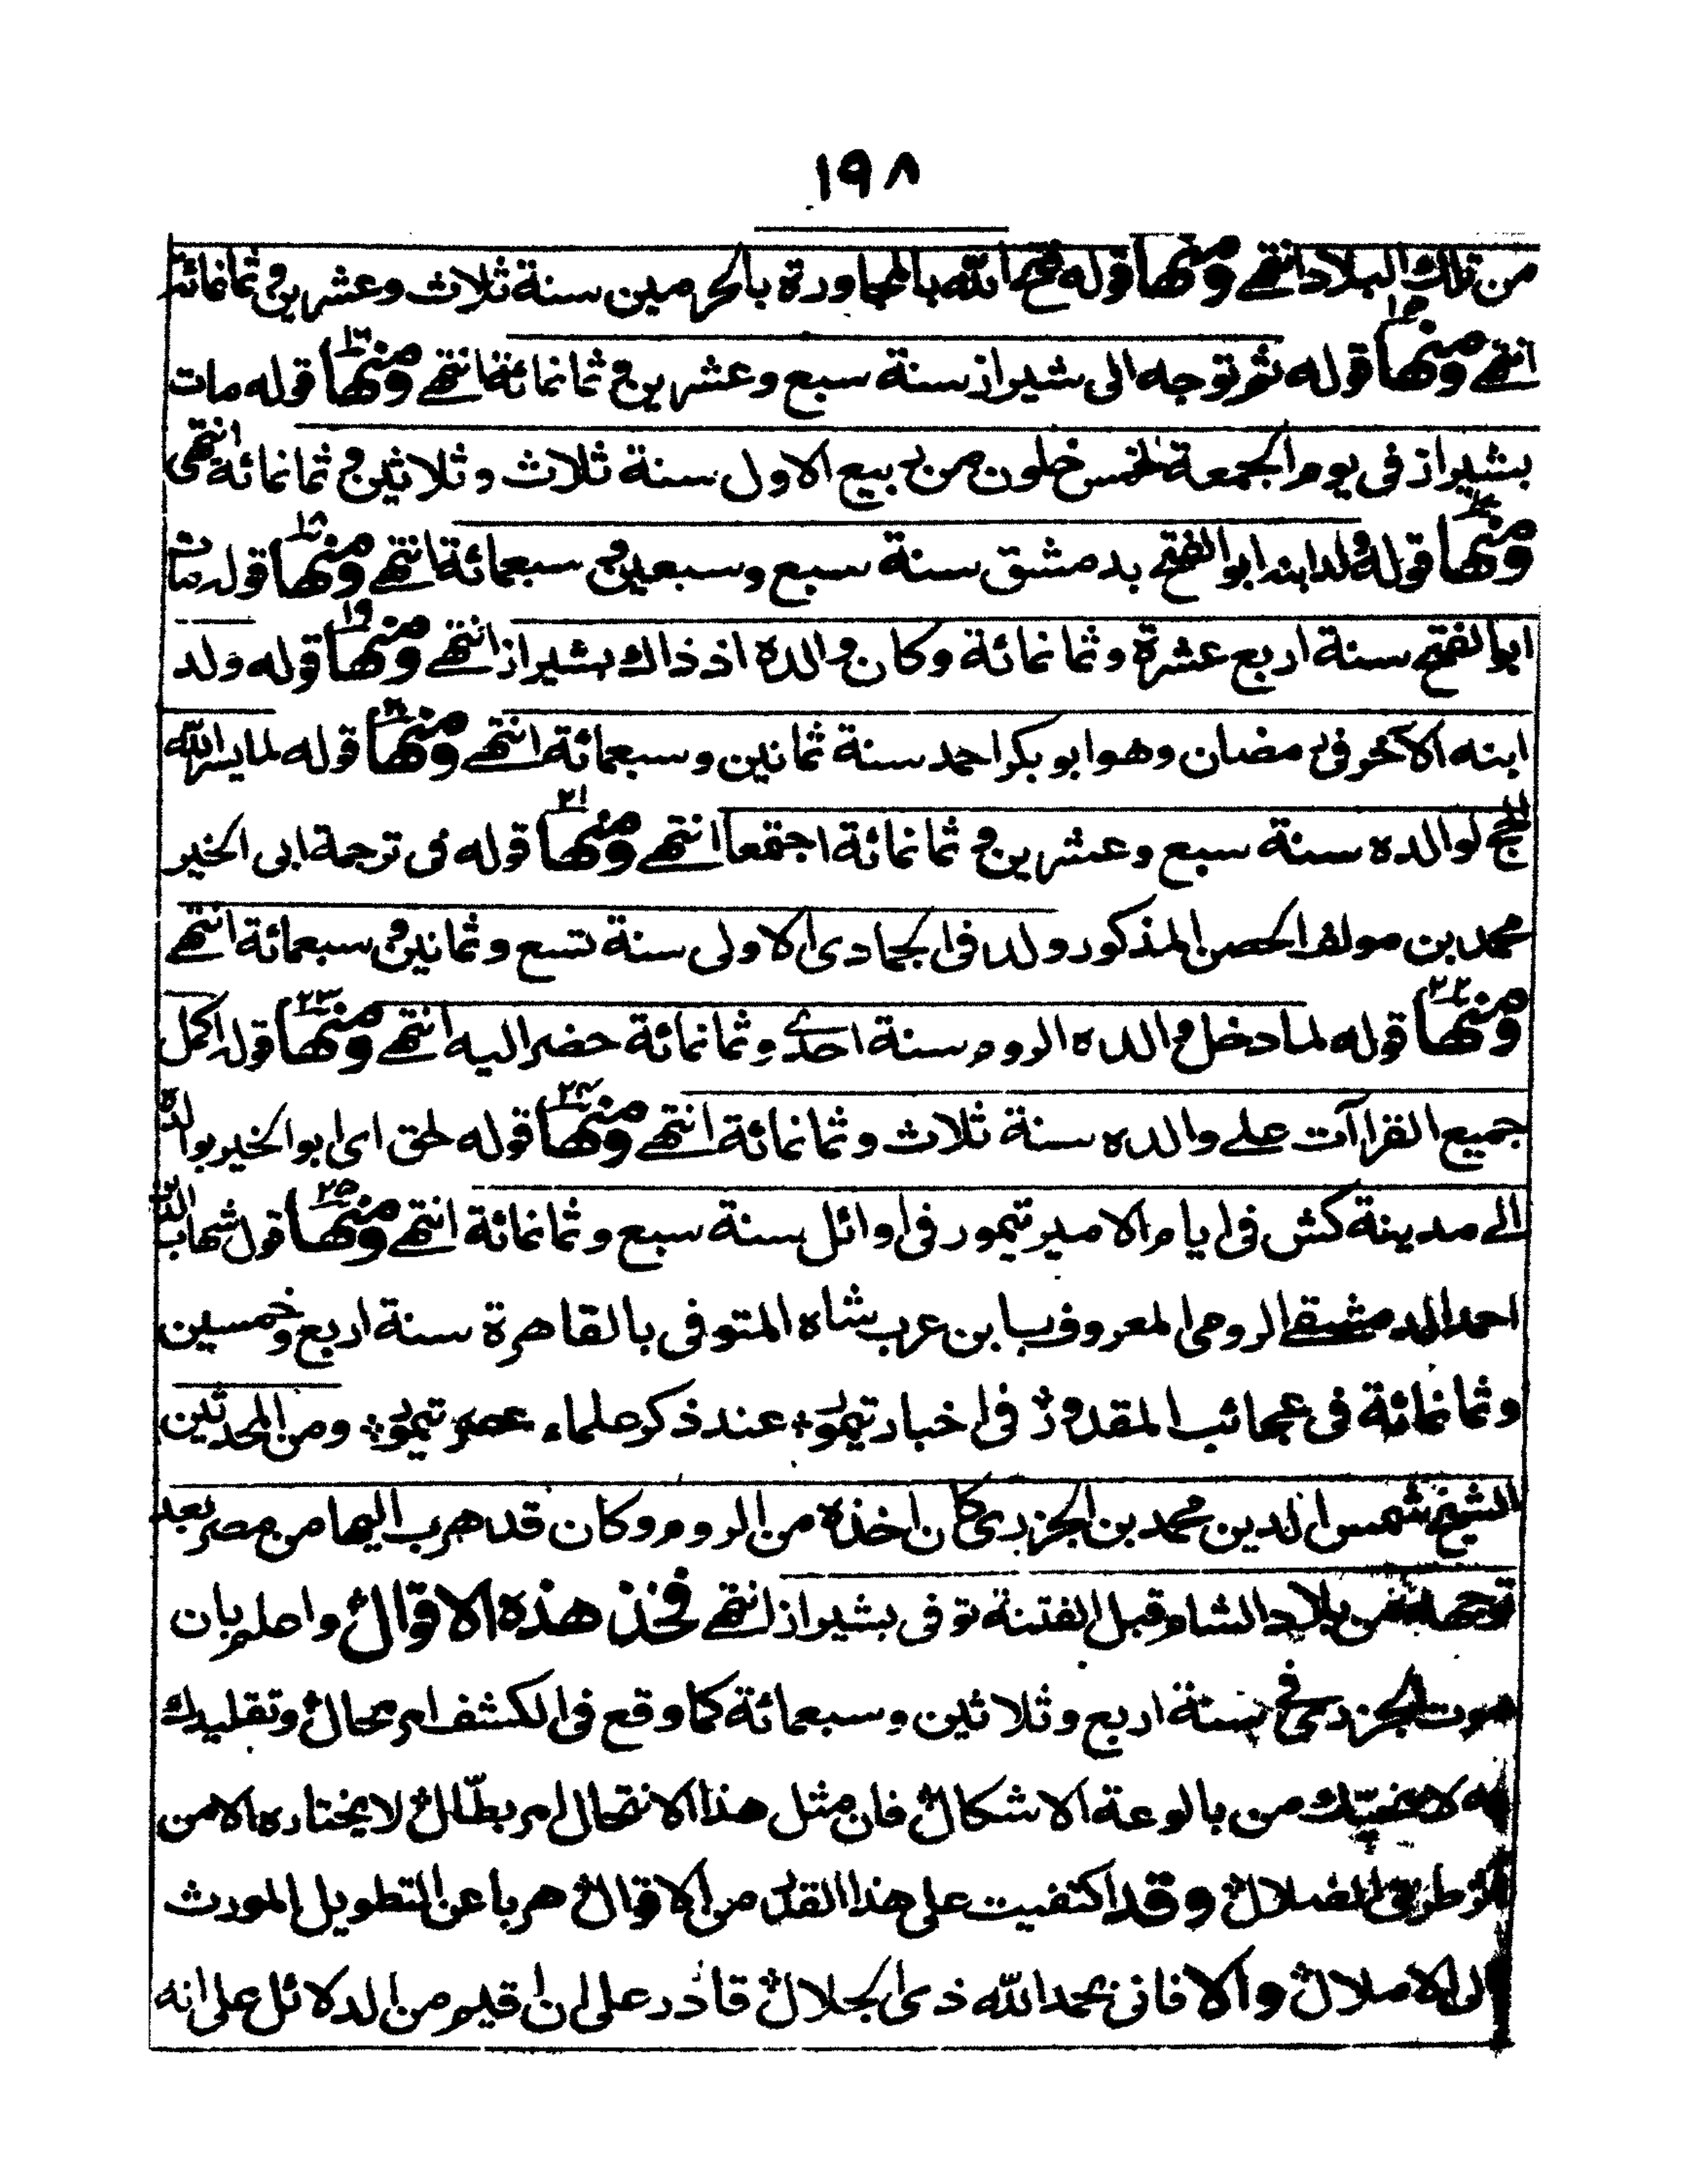 ١٩٨
من تلك البلاد انتهى ومنها قوله فتح الله بالمجاورة بالحرمين سنة ثلاث وعشرين وثمانمائة
١٥
انتهى ومنها قوله ثم توجه الى شيراز سنة سبع وعشرين وثمانمائة انتهى ومنها ١٦ قوله مات
بشيراز في يوم الجمعة لخمس خلون من ربيع الاول سنة ثلاث وثلاثين وثمانمائة انتهى
ومنها قوله ولد ابنه ابو الفتح بدمشق سنة سبع وسبعين وسبعمائة انتهى ومنها ١٨ قوله مات
ابو الفتح سنة اربع عشرة وثمانمائة وكان والده اذ ذاك بشيراز انتهى ومنها ١٩ قوله ولد
ابنه الآخر في رمضان وهو ابو بكر احمد سنة ثمانين وسبعمائة انتهى ومنها ٢٠ قوله لما يسر الله
الحج لوالده سنة سبع وعشرين وثمانمائة اجتمعا انتهى ومنها ٢١ قوله في ترجمة ابى الخير
محمد بن مولف الحصن المذكور ولد في الجمادى الاولى سنة تسع وثمانين وسبعمائة انتهى
ومنها ٢٢ قوله لما دخل والده الروم سنة احدى وثمانمائة حضر اليه انتهى ومنها ٢٣ قوله اكمل
جميع القراآت على والده سنة ثلاث وثمانمائة انتهى ومنها ٢٤ قوله لحق اى ابو الخير بوالده
الى مدينة كش في ايام الامير تيمور في اوائل سنة سبع وثمانمائة انتهى ومنها ٢٥ قول شهاب الدين
احمد الدمشقي الرومي المعروف بابن عرب شاه المتوفى بالقاهرة سنة اربع وخمسين
وثمانمائة في عجائب المقدور في اخبار تيمور عند ذكر علماء عصر تيمور ومن المحدثين
الشيخ شمس الدين محمد بن الجزرى كان اخذه من الروم وكان قد هرب اليها من مصر بعد
توجهه من بلاد الشام قبل الفتنة توفى بشيراز انتهى فخذ هذه الاقوال واعلم بان
موت الجزرى في سنة اربع وثلاثين وسبعمائة كما وقع في الكشف امر محال وتقليدك
به لا ينجيك من بالوعة الاشكال فان مثل هذا الانتحال امر بطّال لا يختاره الا من
طريق الضلال وقد اكتفيت على هذا القدر من الاقوال هربا عن التطويل المورث
الى الاملال والا فانى بحمد الله ذى الجلال قادر على ان اقيم من الدلائل على انه